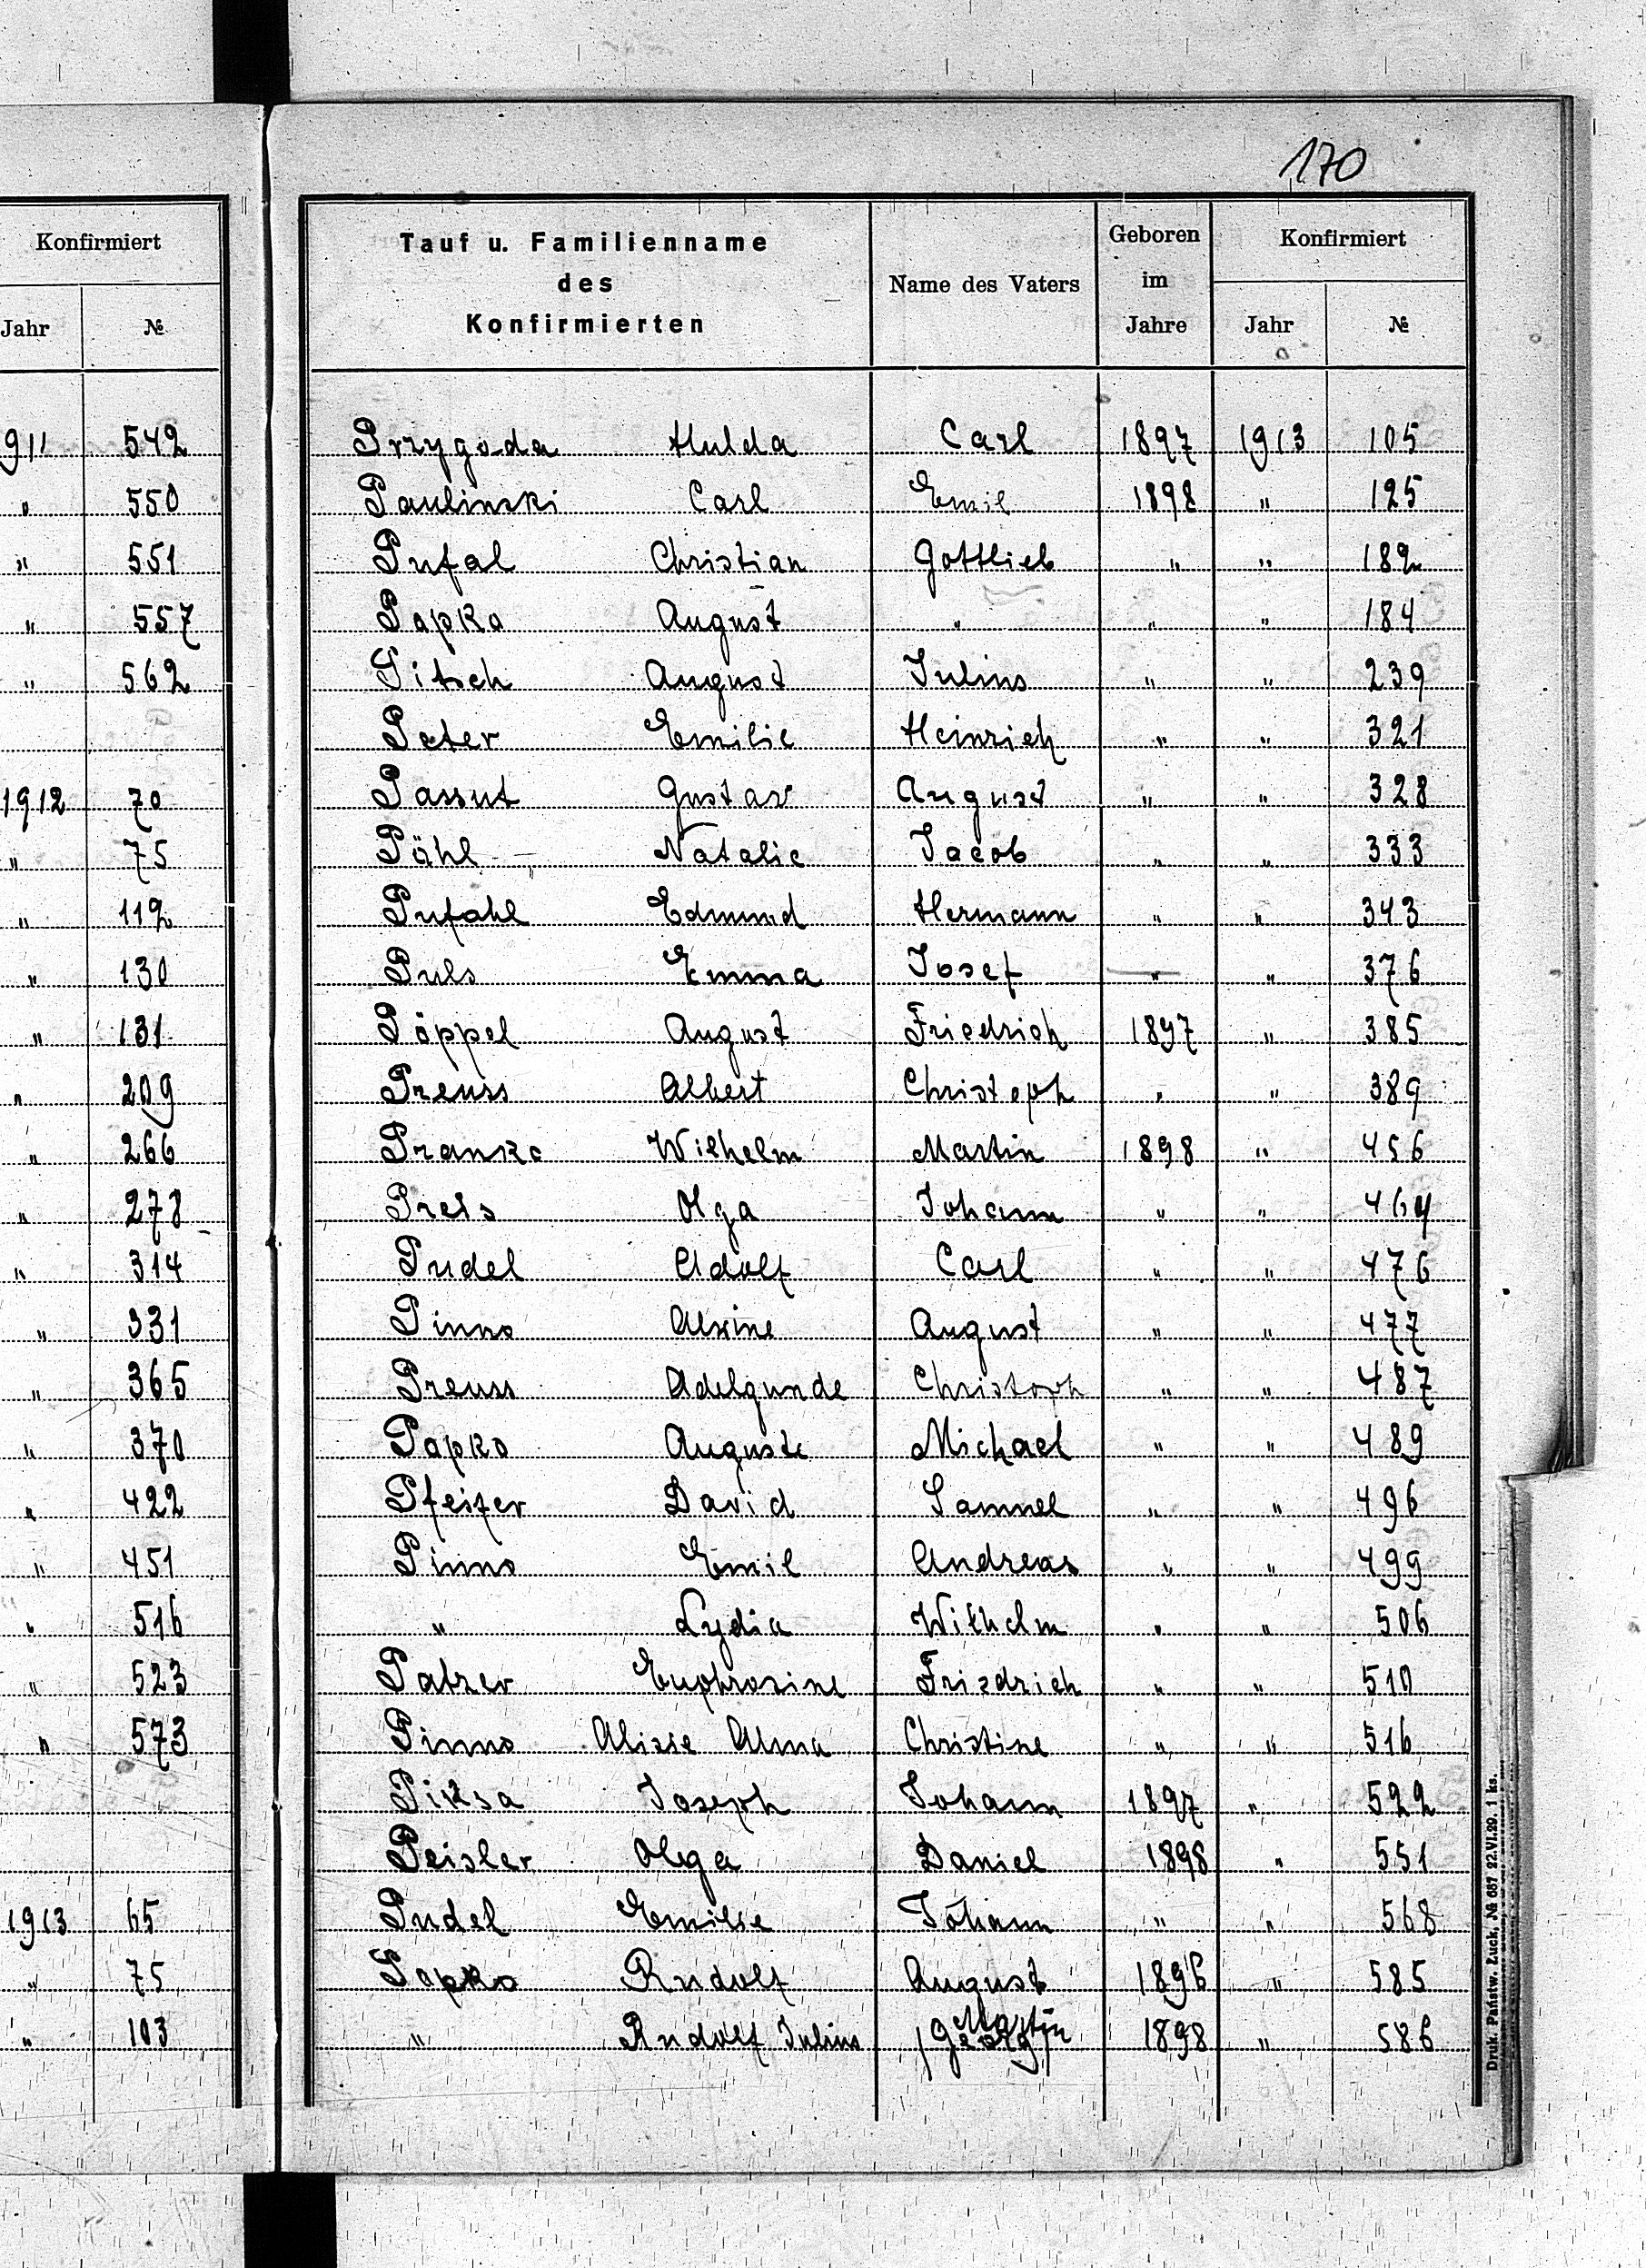 170
Konfirmiert
Jahr №
911 542
" 550
" 551
" 557
" 562
1912 70
" 75
" 112
" 130
" 131
" 209
" 266
" 278
" 314
" 331
" 365
" 370
" 422
" 451
" 516
" 523
" 573
1913 65
" 75
" 103
Tauf u. Familienname des Konfirmierten Name des Vaters Geboren im Jahre Konfirmiert
Jahr №
Przygoda Hulda Carl 1897 1913 105
Paulinski Carl Emil 1898 " 125
Pufal Christian Gottlieb " " 182
Papko August " " " 184
Pitsch August Julius " " 239
Peter Emilie Heinrich " " 321
Passut Gustav August " " 328
Pähl Natalie Jacob " " 333
Pufahl Edmund Hermann " " 343
Puls Emma Josef " " 376
Pöppel August Friedrich 1897 " 385
Preuss Albert Christoph " " 389
Pranke Wilhelm Martin 1898 " 456
Preis Olga Johann " " 464
Pudel Adolf Carl " " 476
Pinno Alwine August " " 477
Preuss Adelgunde Christoph " " 487
Papko Auguste Michael " " 489
Pfeifer David Samuel " " 496
Pinno Emil Andreas " " 499
" Lydia Wilhelm " " 506
Patzer Euphrosine Friedrich " " 510
Pinno Alisse Alma Christine " " 516
Piksa Joseph Johann 1897 " 522
Peisler Olga Daniel 1898 " 551
Pudel Emilie Johann " " 568
Papko Rudolf August 1896 " 585
" Rudolf Julius Martin Georg 1898 " 586
Druk. Państw. Łuck, № 687 22.VI.29. 1 ks.